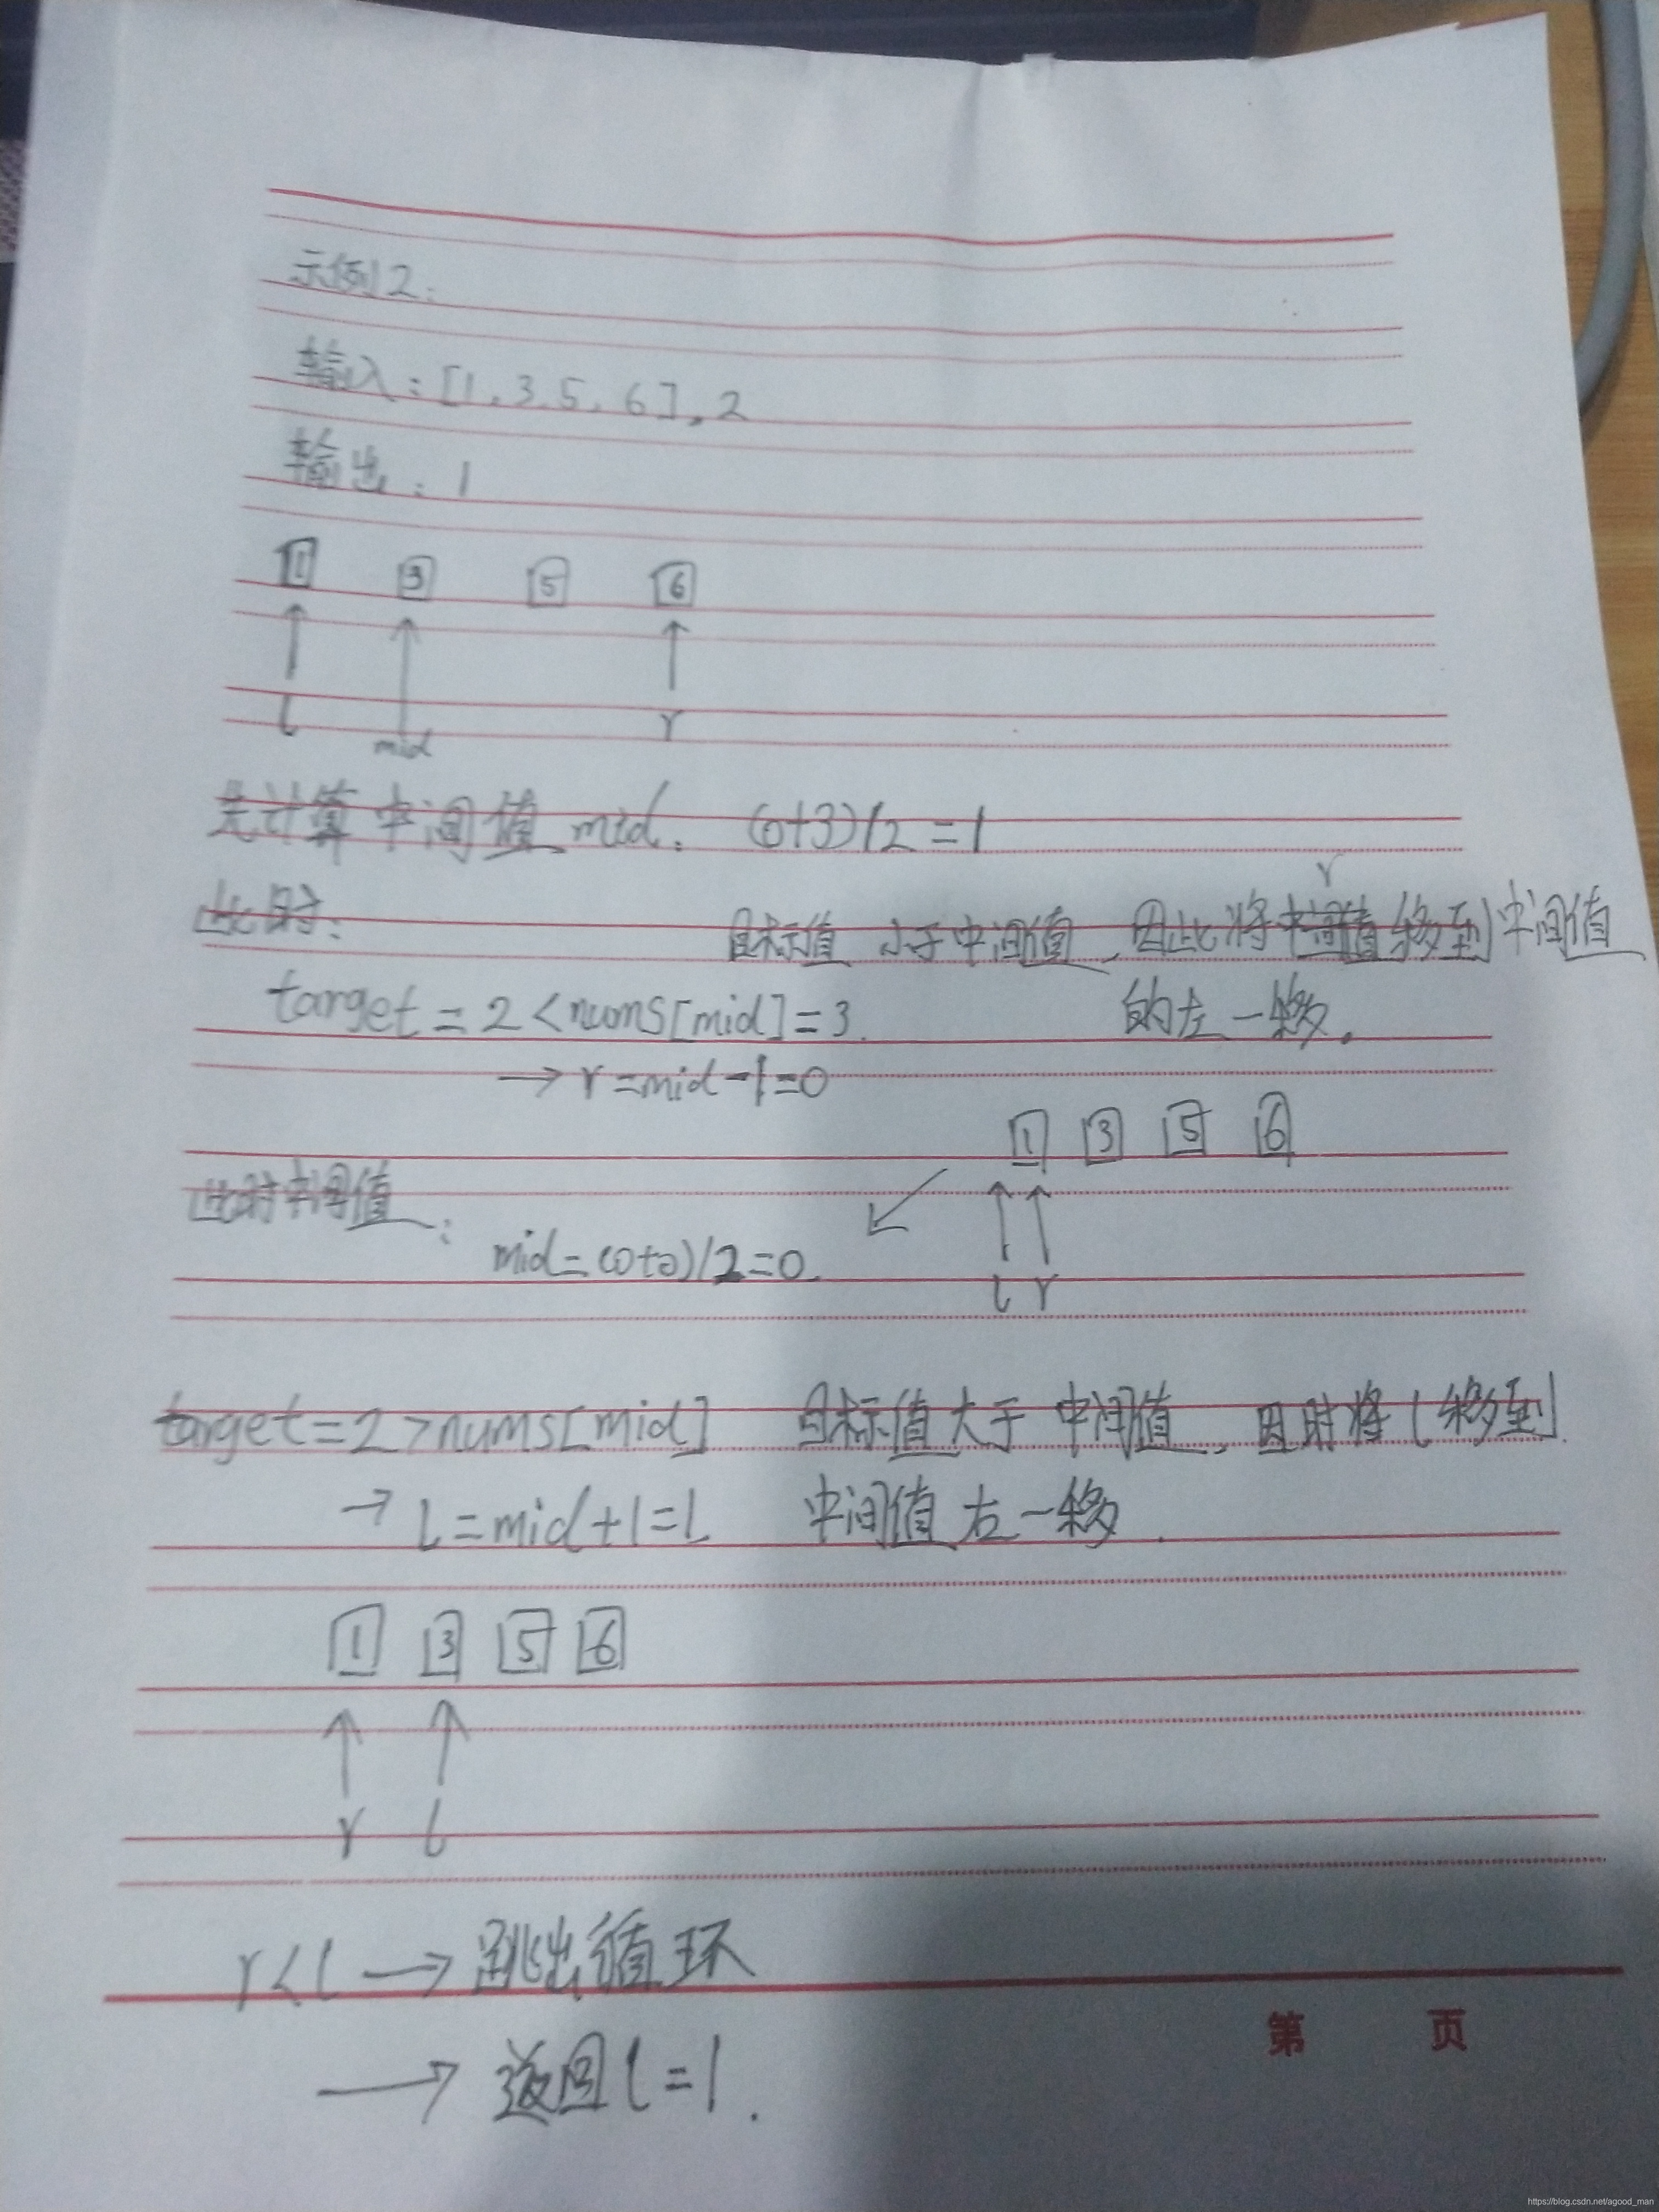 示例2:
输入:[1,3,5,6],2
输出:1
1 3 5 6
l mid r
先计算中间值mid. (0+3)/2=1
此时: 目标值小于中间值,因此将r移到中间值
target=2<nums[mid]=3. 的左一移.
→r=mid-1=0
1 3 5 6
此时中间值: mid=(0+0)/2=0.
l r
target=2>nums[mid] 目标值大于中间值,因时将l移到
→l=mid+1=1 中间值右一移.
1 3 5 6
r l
r<l→跳出循环
第 页
→返回l=1.
https://blog.csdn.net/agood_man